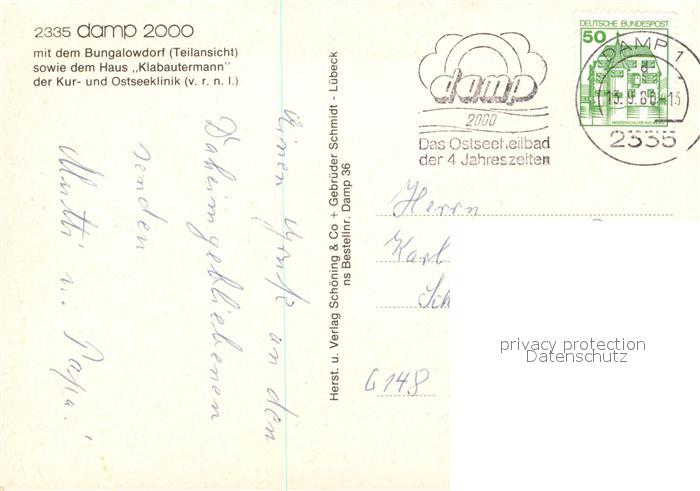 2335 damp 2000
mit dem Bungalowdorf (Teilansicht)
sowie dem Haus „Klabautermann"
der Kur- und Ostseeklinik (v. r. n. l.)
Einen Gruß an den
Daheimgebliebenen
senden
Mutti u. Papa!
Herst. u. Verlag Schöning & Co + Gebrüder Schmidt - Lübeck
ns Bestellnr. Damp 36
damp
2000
Das Ostseeheilbad
der 4 Jahreszeiten
DEUTSCHE BUNDESPOST
50
DAMP 1
2335
Herrn
Karl
Sch
G148
privacy protection
Datenschutz